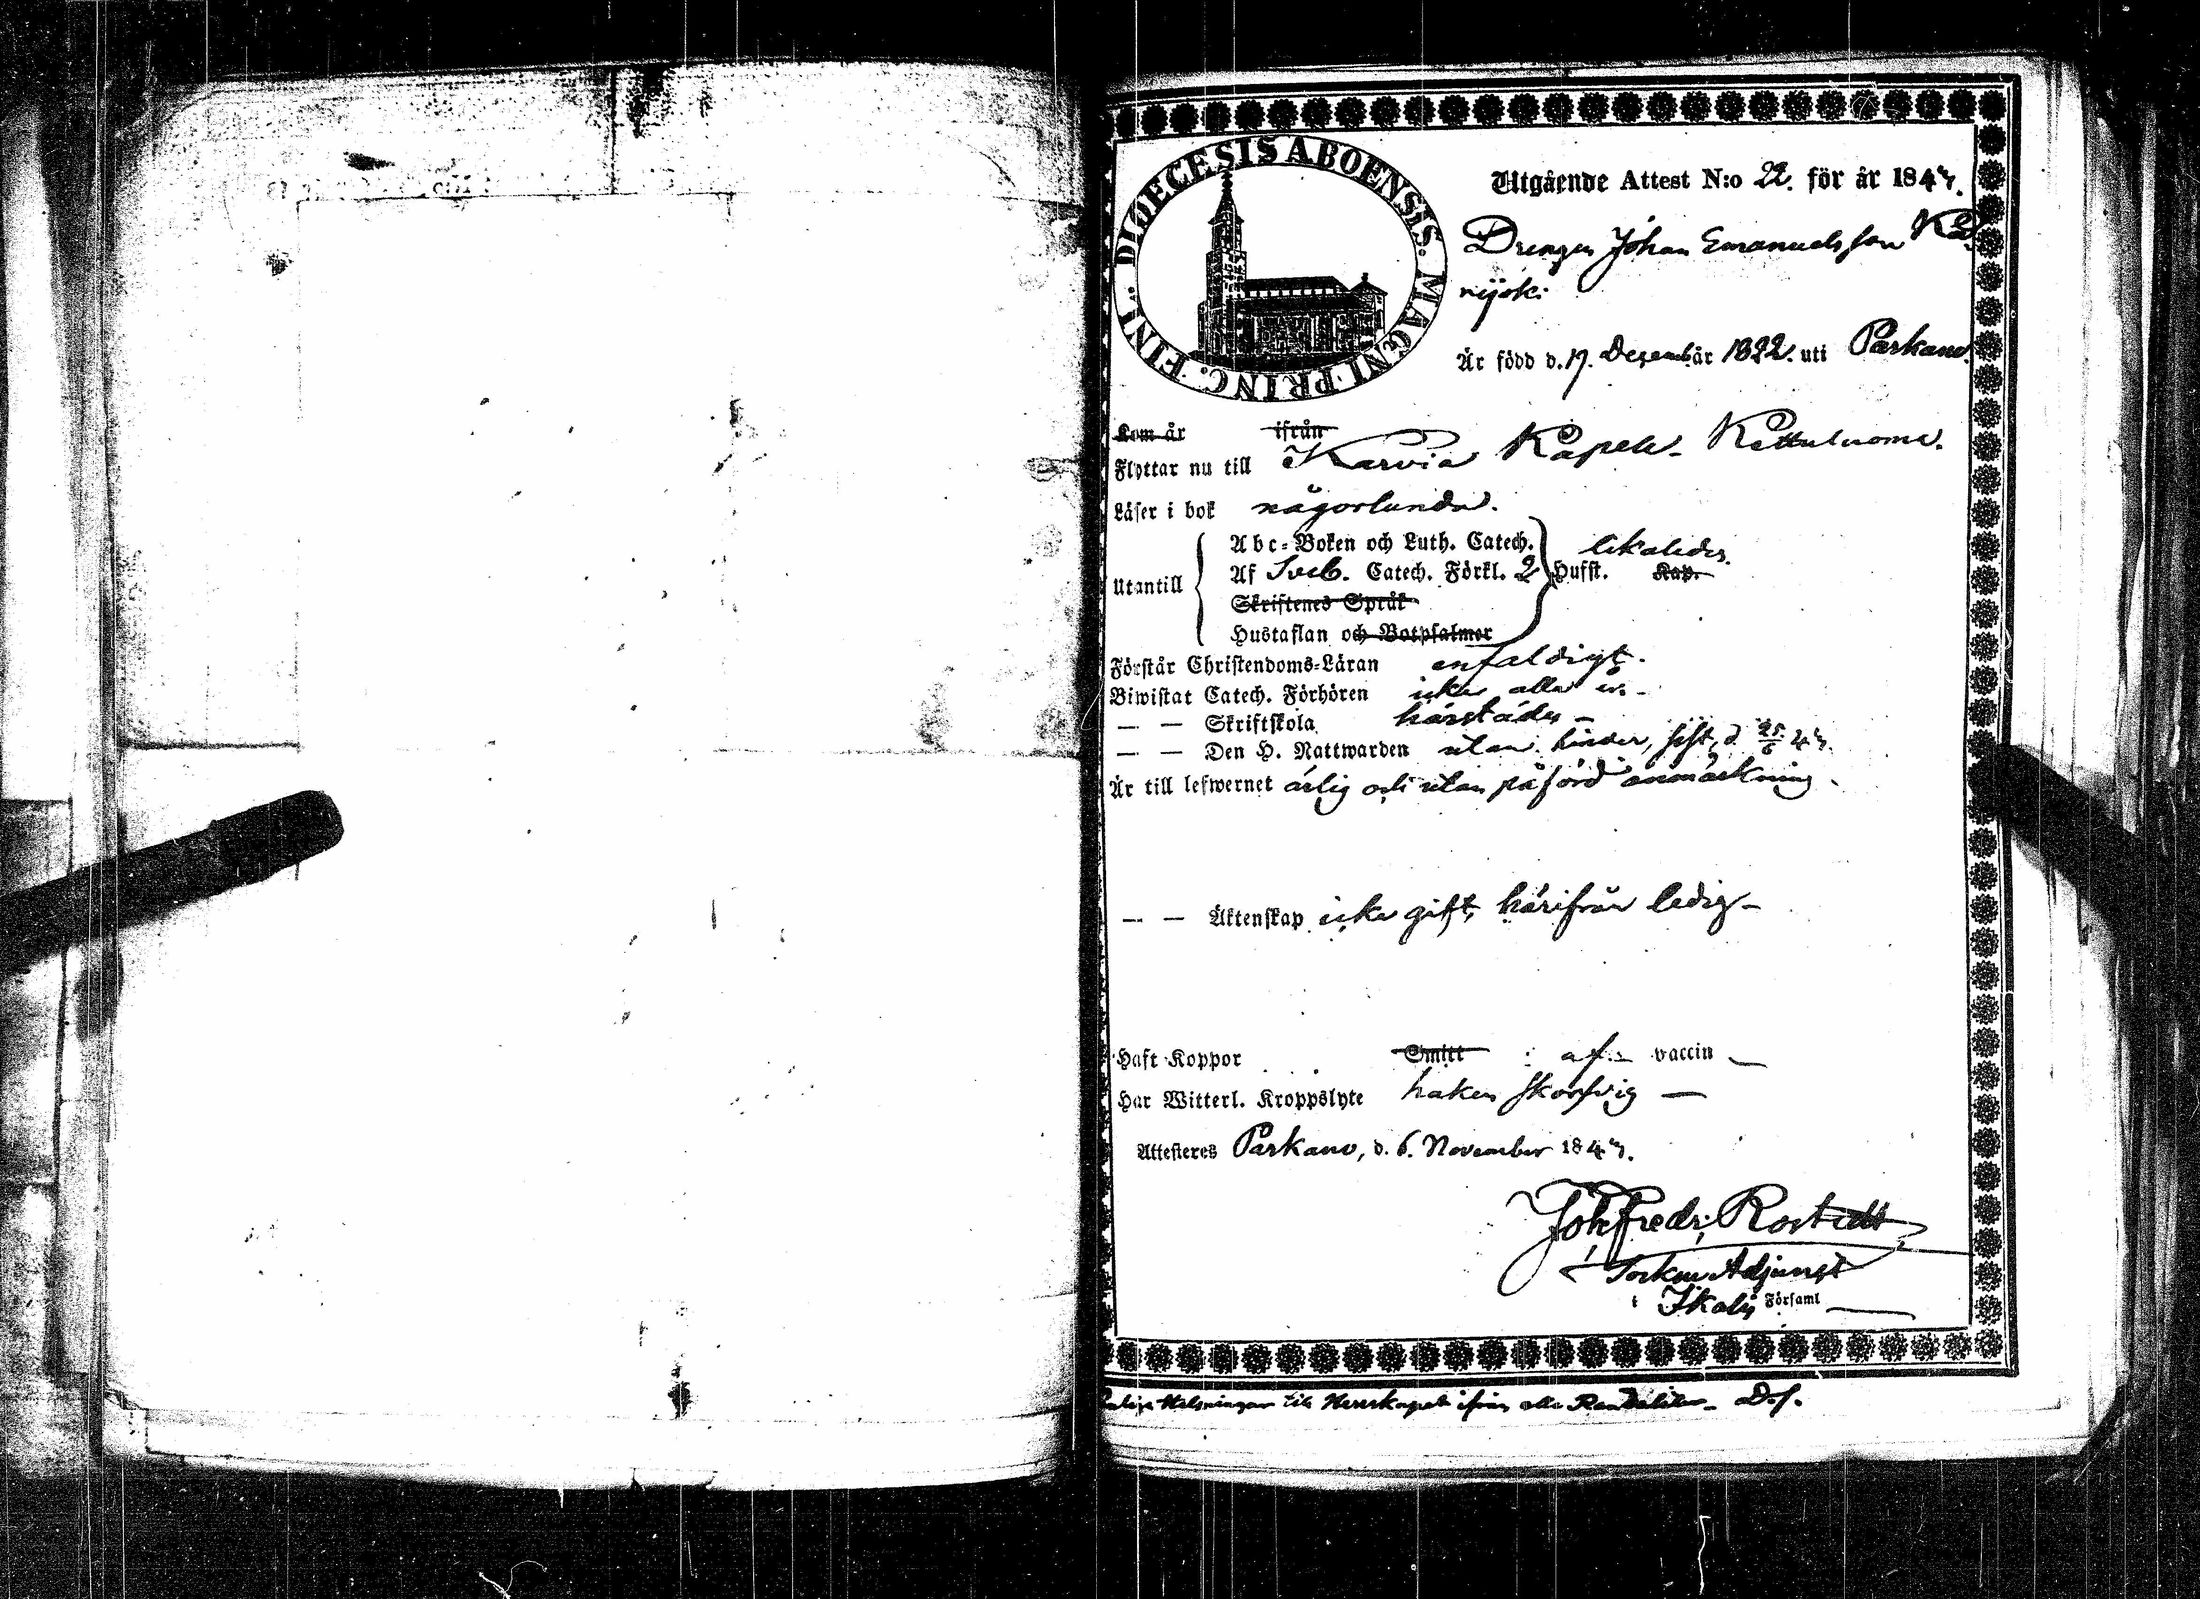 DIOECESIS ABOENSIS. MAGNI PRINC. FINL.
Utgående Attest N:o 22. för år 1847.
Drengen Johan Emanuelsson
Är född d. 17. Decemb. år 1822. uti Parkano.
Kom år ifrån
Flyttar nu till Karvia Kapell
Läser i bok någorlunda.
Abc-Boken och Luth. Catech. likaledes.
Utantill Af Sveb. Catech. Förkl. 2 Husst. Kap.
Skriftenes Språk
Hustaflan och Botpsalmer
Förstår Christendoms-Läran enfaldigt.
Biwistat Catech. Förhören icke alla år.
— — Skriftskola härstädes
— — Den H. Nattwarden utan hinder, sist d. 25/6 47.
Är till lefwernet ärlig och utan påförd anmärkning.
— — Äktenskap icke gift, härifrån ledig
Haft Koppor Smitt af vaccin
Har Witterl. Kroppslyte
Attesteres Parkano, d. 6. November 1847.
Joh. Fredr. Rostedt
Adjunct
i Ikalis Församl
Helsningar till Herrskapet ifrån alla